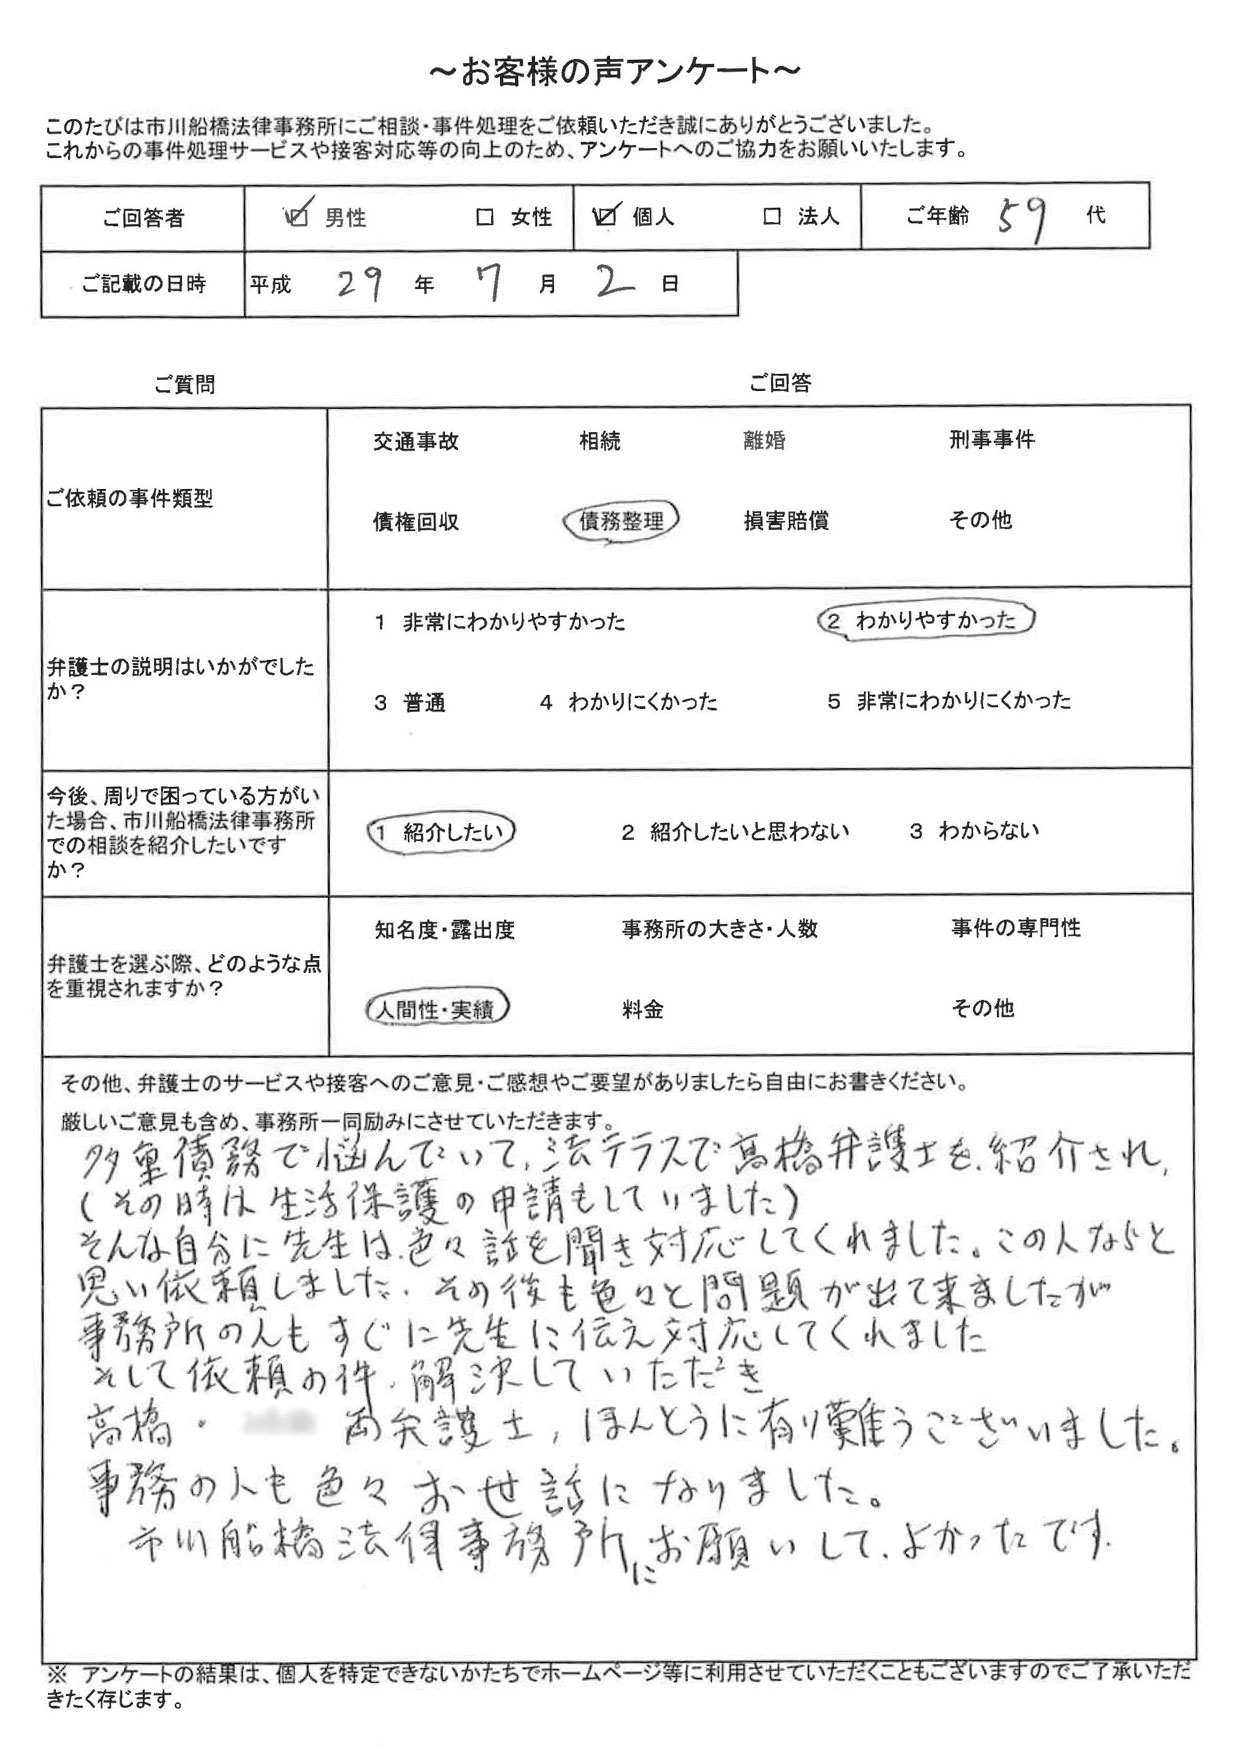 ～お客様の声アンケート～
このたびは市川船橋法律事務所にご相談・事件処理をご依頼いただき誠にありがとうございました。
これからの事件処理サービスや接客対応等の向上のため、アンケートへのご協力をお願いいたします。
ご回答者 ☑ 男性 □ 女性 ☑ 個人 □ 法人 ご年齢 59 代
ご記載の日時 平成 29 年 7 月 2 日
ご質問 ご回答
ご依頼の事件類型
交通事故 相続 離婚 刑事事件
債権回収 債務整理 損害賠償 その他
弁護士の説明はいかがでした
か？
1 非常にわかりやすかった 2 わかりやすかった
3 普通 4 わかりにくかった 5 非常にわかりにくかった
今後、周りで困っている方がい
た場合、市川船橋法律事務所
での相談を紹介したいです
か？
1 紹介したい 2 紹介したいと思わない 3 わからない
弁護士を選ぶ際、どのような点
を重視されますか？
知名度・露出度 事務所の大きさ・人数 事件の専門性
人間性・実績 料金 その他
その他、弁護士のサービスや接客へのご意見・ご感想やご要望がありましたら自由にお書きください。
厳しいご意見も含め、事務所一同励みにさせていただきます。
多重債務で悩んでいて、法テラスで高橋弁護士を、紹介され、
(その時は生活保護の申請もしていました)
そんな自分に先生は、色々話を聞き対応してくれました。この人ならと
思い依頼しました、その後も色々と問題が出て来ましたが
事務所の人もすぐに先生に伝え対応してくれました
そして依頼の件、解決していただき
高橋・ 両弁護士，ほんとうに有り難うございました。
事務の人も色々お世話になりました。
市川船橋法律事務所にお願いして、よかったです.
※ アンケートの結果は、個人を特定できないかたちでホームページ等に利用させていただくこともございますのでご了承いただ
きたく存じます。